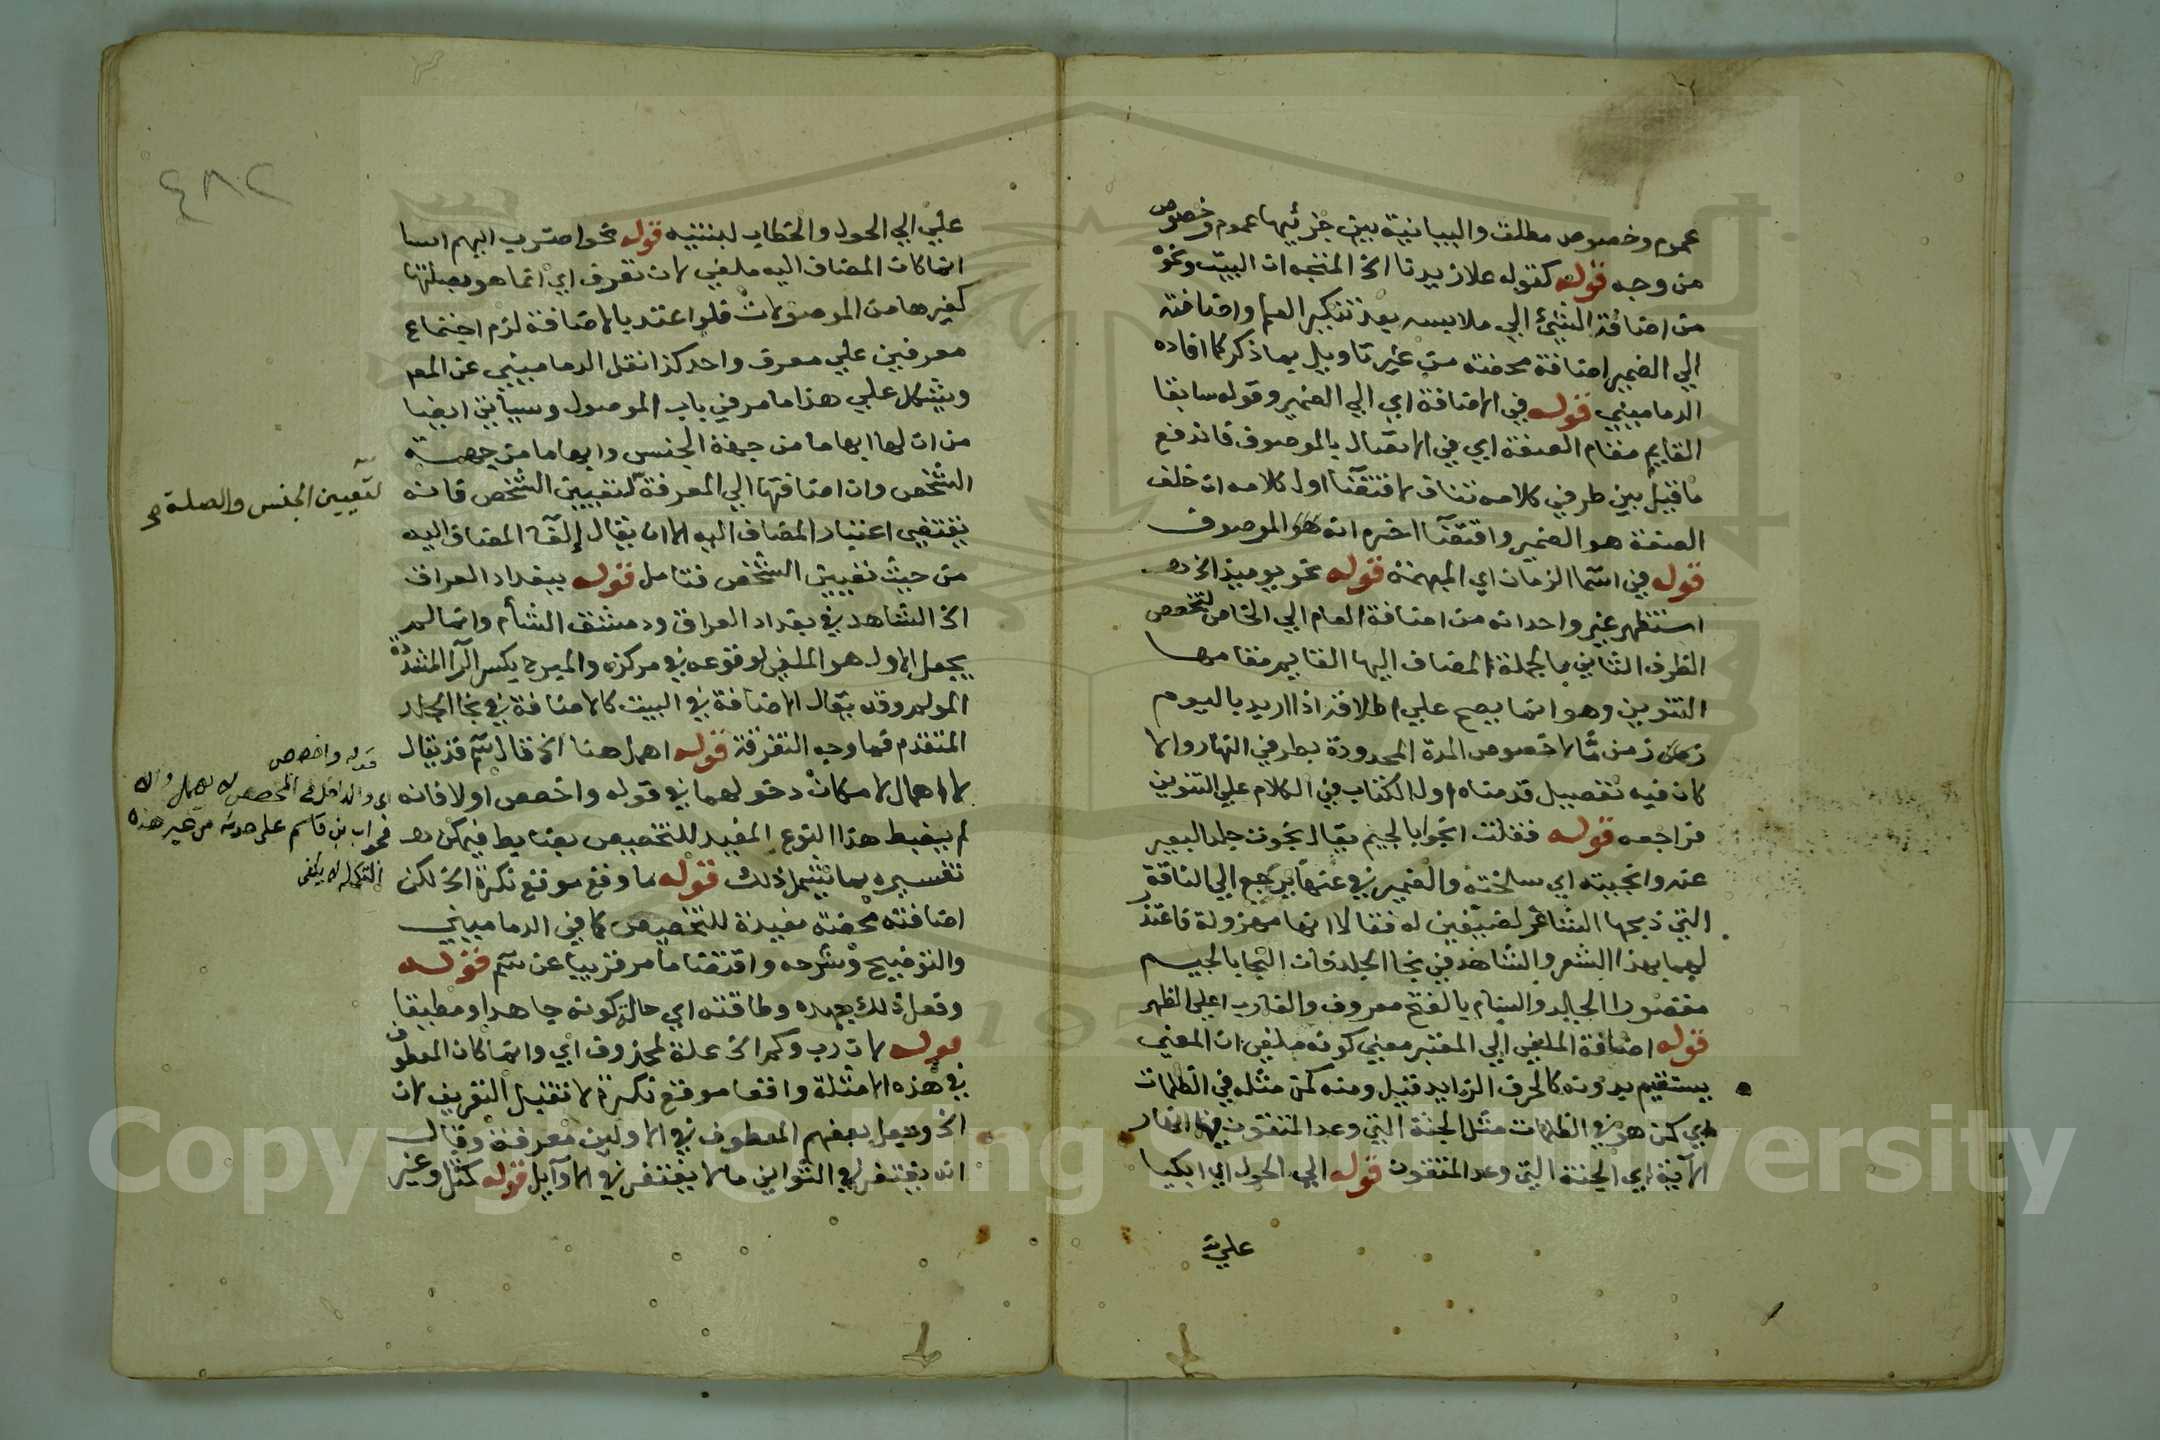 عموم وخصوص مطلق والبيانية بين جزئيها عموم وخصوص
من وجه قوله كقوله علا زيدنا الخ المتجه ان البيت ونحوه
من اضافة الشئ الي ملابسه بعد تنكير العلم واضافته
الي الضمير اضافة محضة من غير تاويل بما ذكر كما افاده
الدماميني قوله في الاضافة اي الي الضمير وقوله سابقا
القايم مقام الصفة اي في الاتصال بالموصوف فاندفع
ما قيل بين طرفي كلامه تناف لاقتضآ اول كلامه ان خلف
الصفة هو الضمير واقتضآ اخره انه هو الموصوف
قوله في اسما الزمان اي المبهمة قوله نحو يوميذ الخ
استظهر غير واحد انه من اضافة العام الي الخاص لتخصص
الظرف الثاني بالجملة المضاف اليها القايم مقامها
التنوين وهو انما يصح علي اطلاقه اذا اريد باليوم
زمن ما لا خصوص المدة المحدودة بطرفي النهار والا
كان فيه تفصيل قدمناه اول الكتاب في الكلام علي التنوين
فراجعه قوله فقلت انجوا بالجيم يقال نجوت جلد البعير
عنه وانجيته اي سلخته والضمير في عنها يرجع الي الناقة
التي ذبحها الشاعر لضيفين له فقالا انها مهزولة فاعتذر
لهما بهذا الشعر والشاهد في نجا الجلد فان النجا بالجيم
مقصورا الجلد والسنام بالفتح معروف والغارب اعلي الظهر
قوله اضافة الملغي الي المعتبر معني كونه ملغي ان المعني
يستقيم بدونه كالحرف الزايد قيل ومنه كمن مثله في الظلمات
اي كمن هو في الظلمات مثل الجنة التي وعد المتقون فيها انهار
الآية اي الجنة التي وعد المتقون قوله الي الحول اي ابكيا
علي
٤٨٢
علي الي الحول والخطاب لبنتيه قوله نحو اضرب ايهم اسا
انما كان المضاف اليه ملغي لان تعرف اي انما هو بصلتها
كغيرها من الموصولات فلو اعتد بالاضافة لزم اجتماع
معرفين علي معرف واحد كذا نقل الدماميني عن المص
ويشكل علي هذا ما مر في باب الموصول وسياتي ايضا
من ان لها ابهاما من جهة الجنس وابهاما من جهة
الشخص وان اضافتها الي المعرفة لتعيين الشخص فانه
يقتضي اعتبار المضاف اليه الا ان يقال إلغآ المضاف اليه
من حيث تعيين الشخص فتامل قوله ببغداد العراق
الخ الشاهد في بغداد العراق ودمشق الشأم وانما لم
يجعل الاول هو الملغي لوقوعه في مركزه والمبرح بكسر الرآ المشددة
المولم وقد يقال الاضافة في البيت كالاضافة في نجا الجلد
المتقدم فما وجه التفرقة قوله اهمل هنا الخ قال سم قد يقال
لا اهمال لامكان دخولهما في قوله واخصص اولا فانه
لم يضبط هذا النوع المفيد للتخصيص بضابط فيمكن
تفسيره بما يشمل ذلك قوله ما وقع موقع نكرة الخ لكن
اضافته محضة مفيدة للتخصيص كما في الدماميني
والتوضيح وشرحه واقتضا ما مر قريبا عن سم قوله
وفعل ذلك جهده وطاقته اي حالة كونه جاهدا ومطيقا
قوله لان رب وكم الخ علة لمحذوف اي وانما كان المعطوف
في هذه الامثلة واقعا موقع نكرة لا تقبل التعريف لان
الخ وجعل بعضهم المعطوف في الاولين معرفة وقال
انه يغتفر في الثواني ما لا يغتفر في الاوآيل قوله كمثل وغير
لتعيين الجنس والصلة
قوله واخصص
فجواب ابن قاسم على حدته من غير هذه
التكملة لا يكفى
Copyright © King Saud University